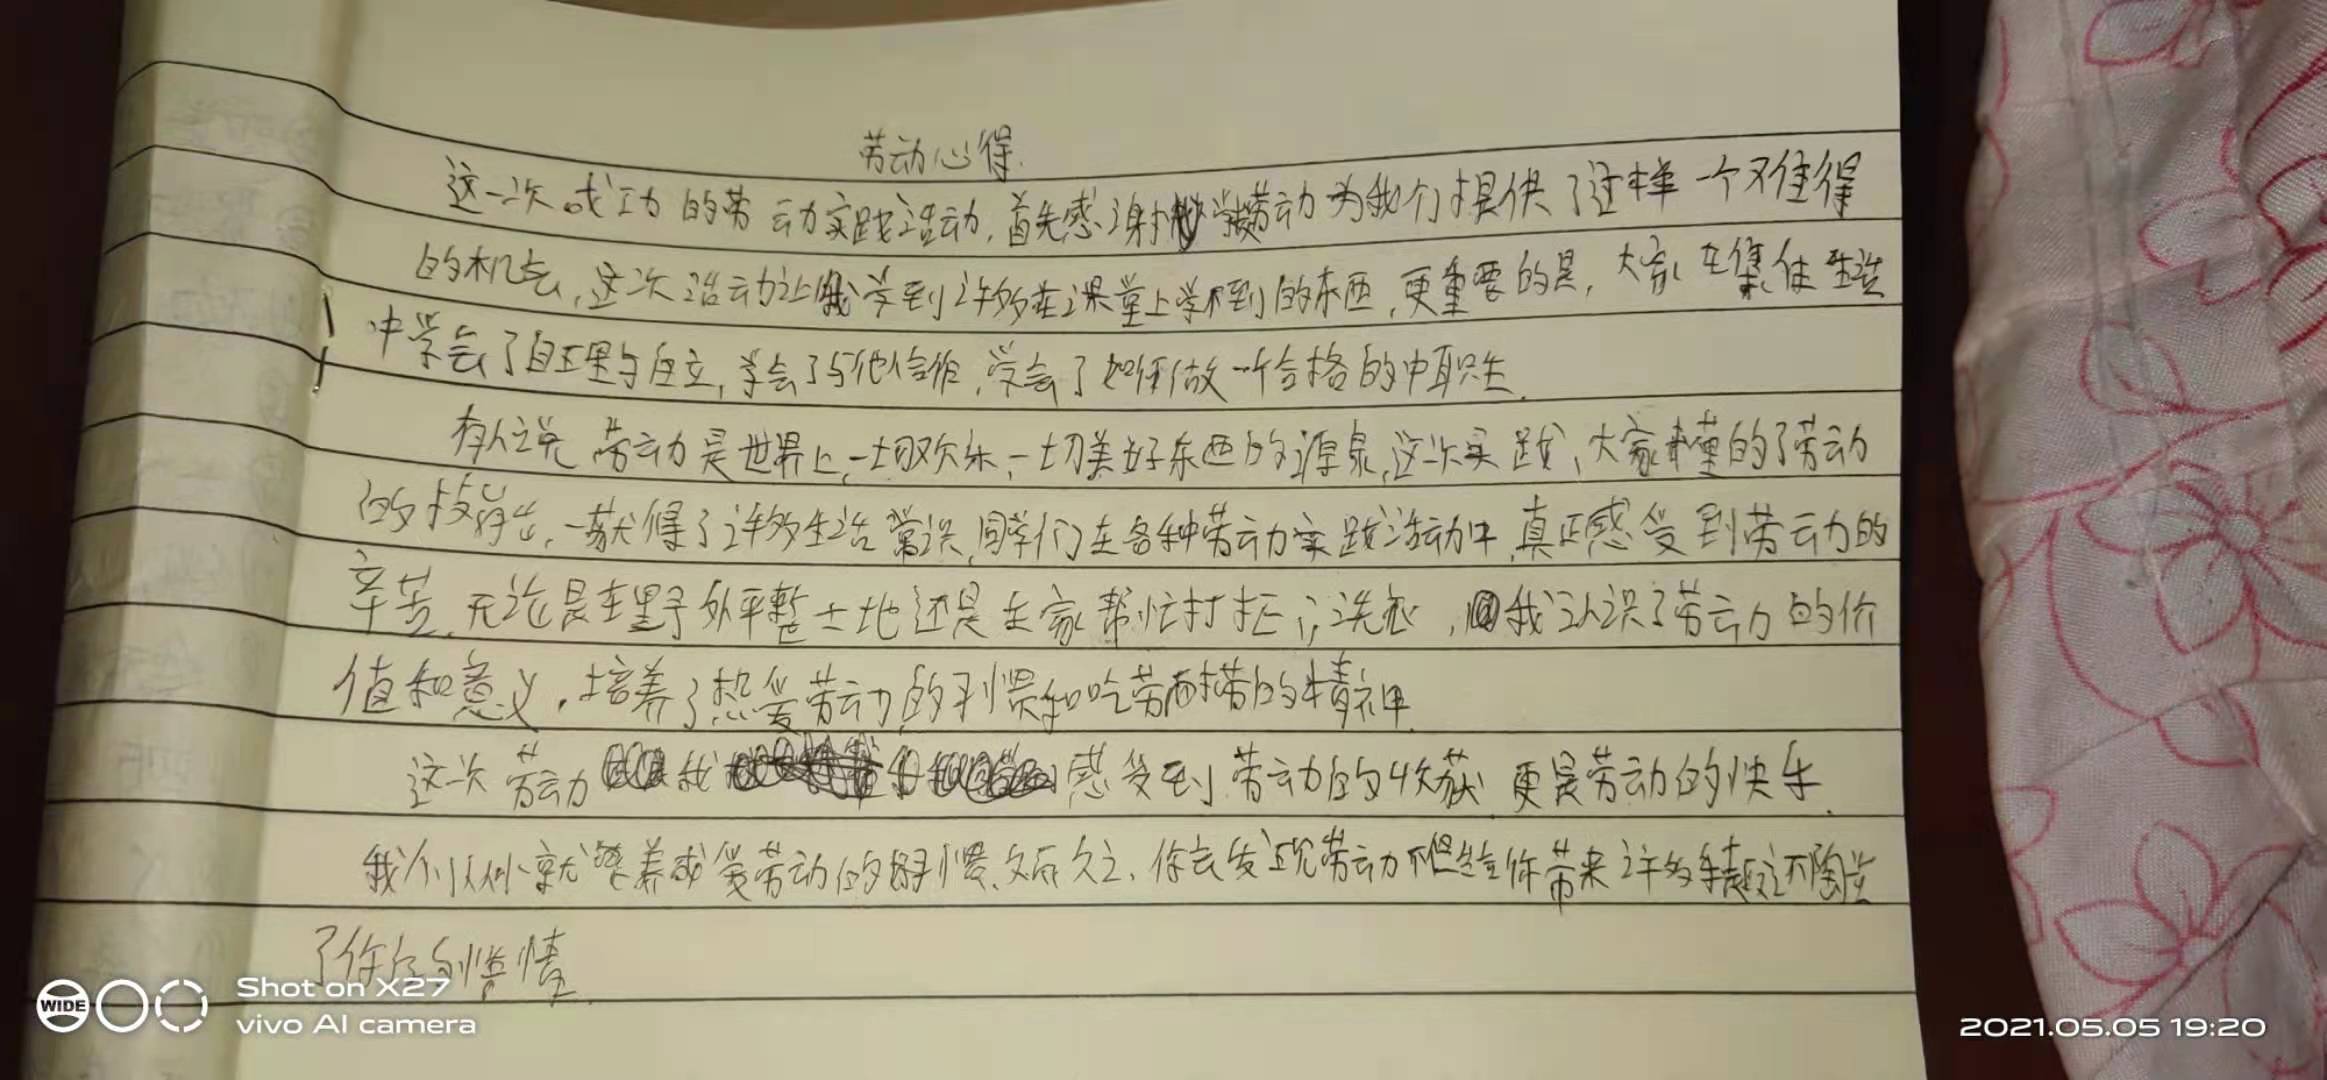 劳动心得.
这一次成功的劳动实践活动,首先感谢学校劳动为我们提供了这样一个难得
的机会,这次活动让我学到许多在课堂上学不到的东西,更重要的是,大家在集体生活
中学会了自理与自立,学会了与他合作,学会了如何做一个合格的中职生.
有人说 劳动是世界上,一切欢乐,一切美好东西的源泉,这次实践,大家懂的了劳动
的技能,获得了许多生活常识,同学们在各种劳动实践活动中,真正感受到劳动的
辛苦,无论是在野外平整土地还是在家帮忙打扫,洗衣,我认识了劳动的价
值和意义,培养了热爱劳动的习惯和吃劳耐劳的精神.
这次劳动我感受到劳动的收获 更是劳动的快乐.
我们从小就要养成爱劳动的好习惯,久而久之,你会发现劳动不但给你带来许多乐趣还陶冶
了你的情
WIDE
Shot on X27
vivo AI camera
2021.05.05 19:20